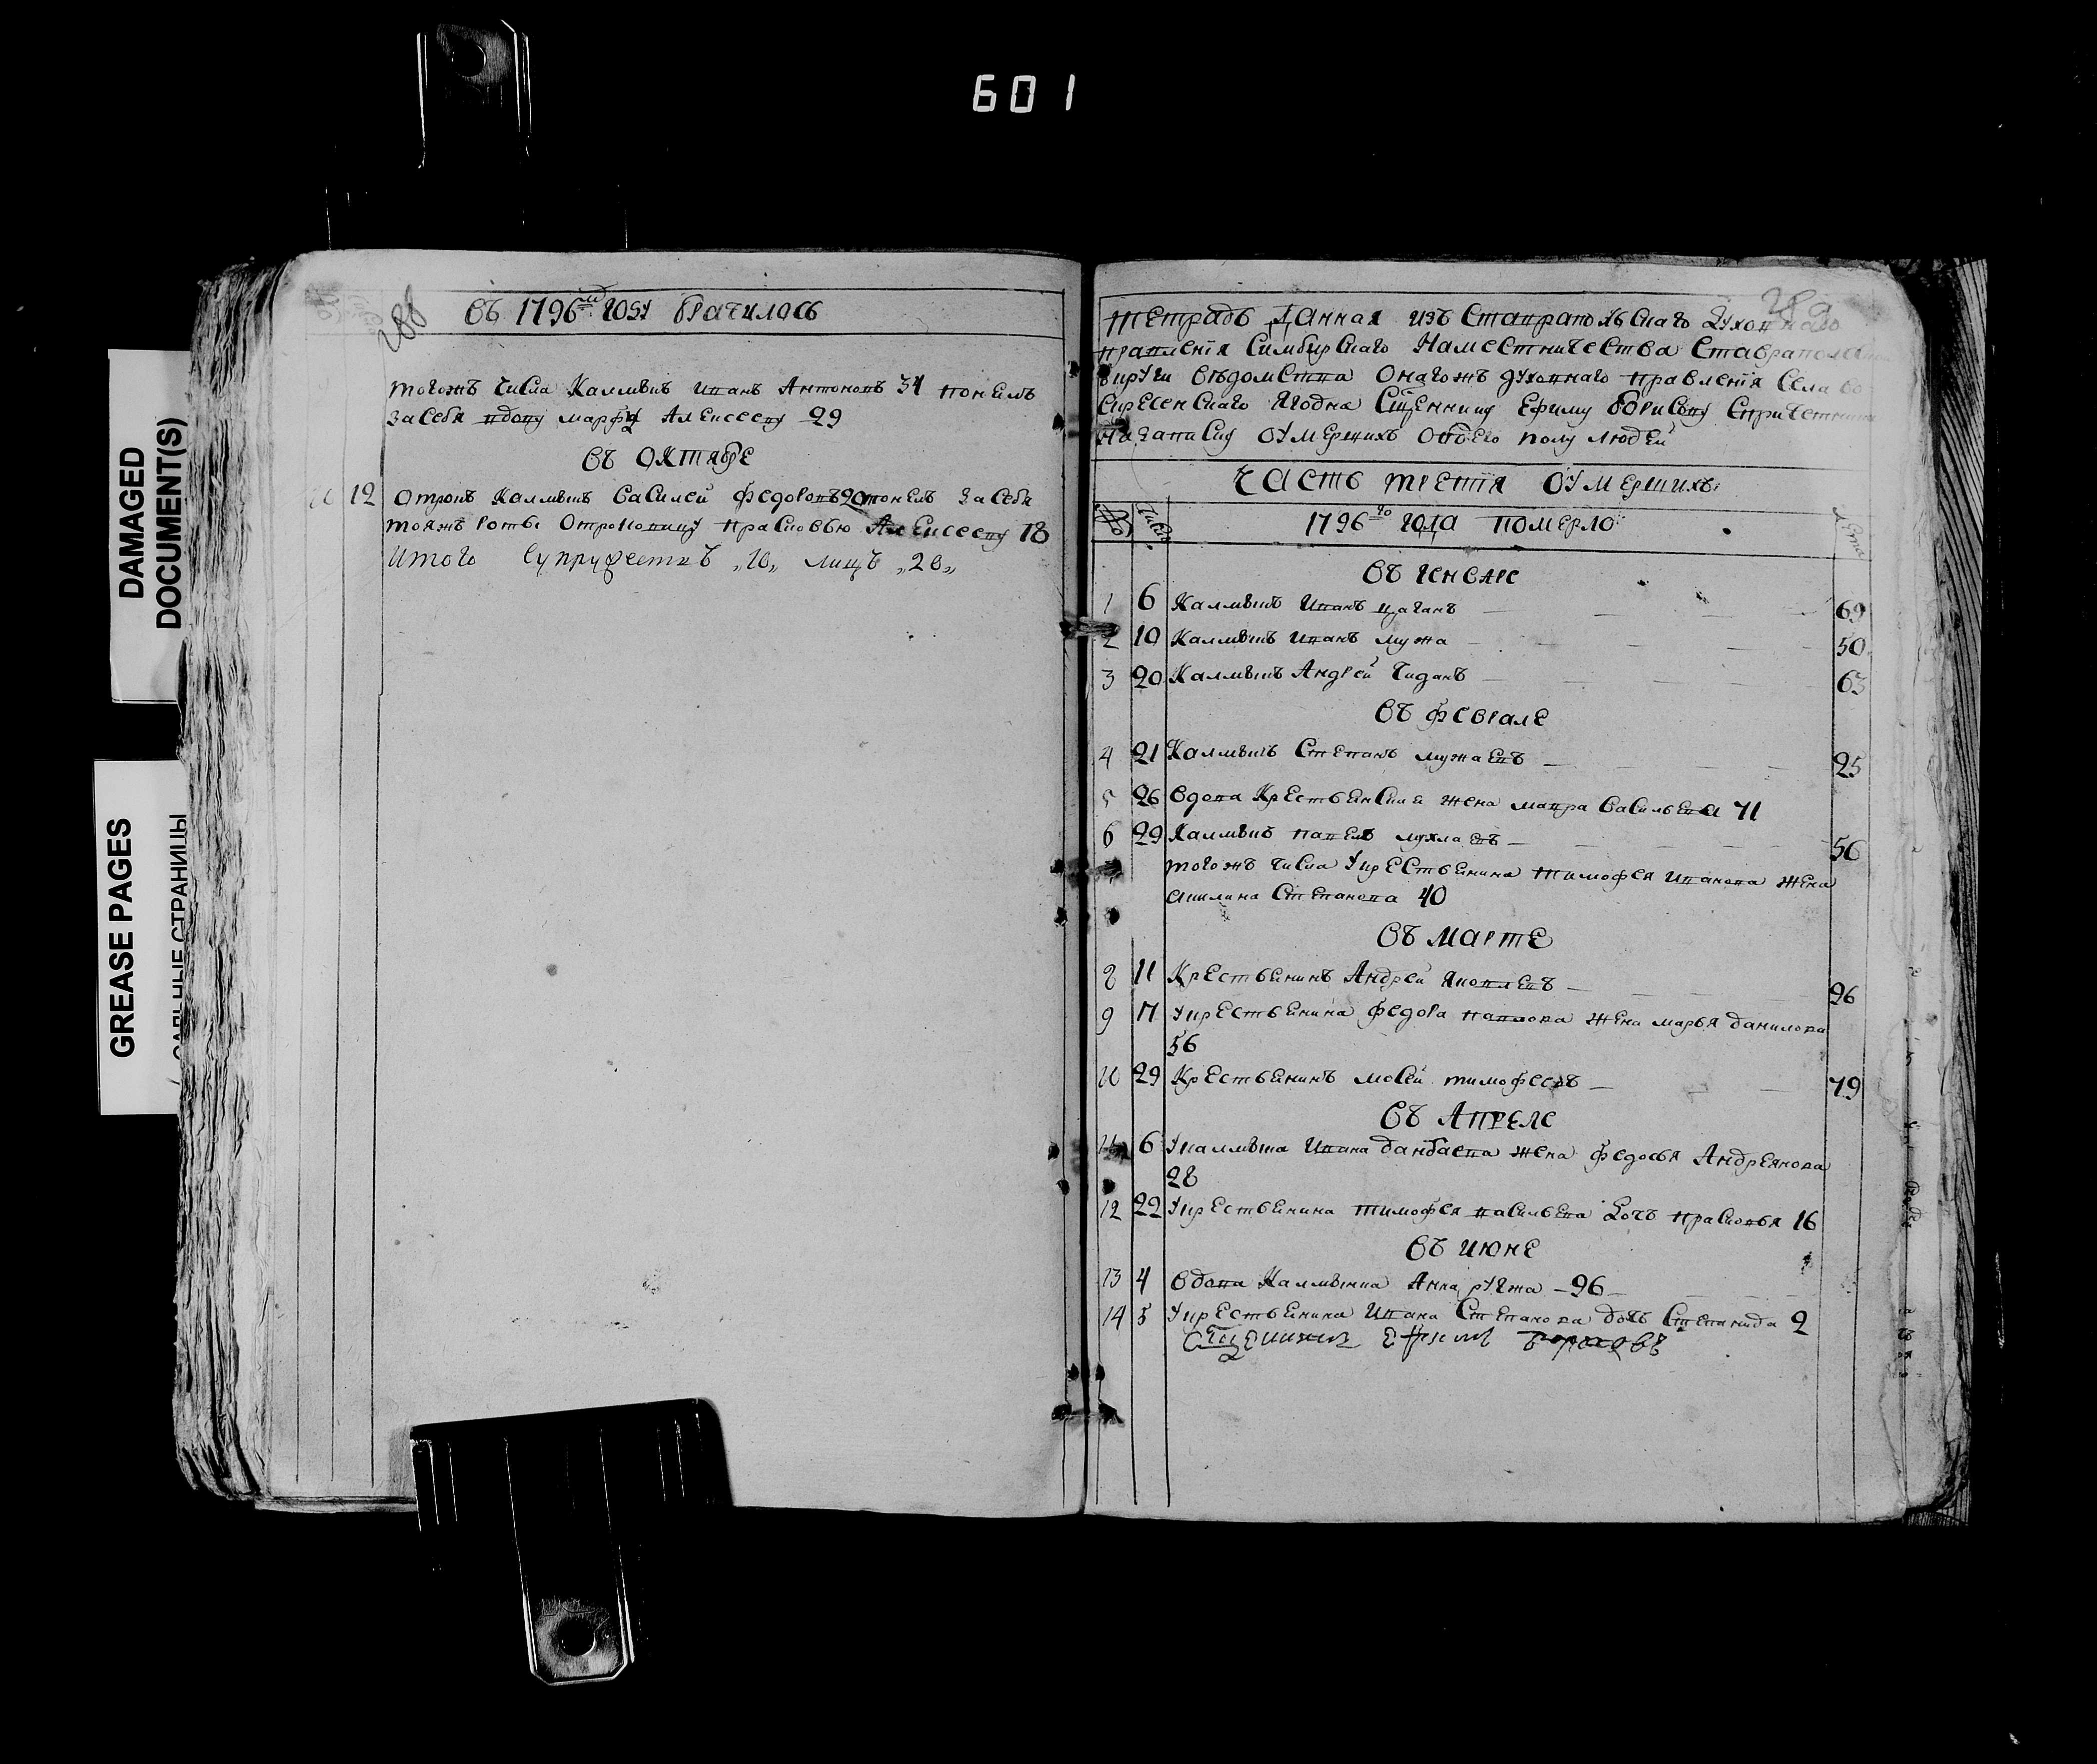 601
DAMAGED
DOCUMENT(S)
GREASE PAGES
САЛЬНЫЕ СТРАНИЦЫ
288
Въ 1796м годУ брачилось
тогожъ числа Калмыкъ Иванъ Антоновъ 34 понелъ
засебя вдову марфу Алексееву 29
Въ Октябре
10 12 Отрокъ Калмыкъ Василей Федоровъ 20 понелъ засебя
тояжъ роты Отроковицу прасковью Алексееву 18
Итого супружествъ „10„ лицъ „20„
289
Тетрадь Данная изъ Ставрапольскаго Духовнаго
правленїя Симбирскаго Наместничества Ставрапольской
вѣдомства Онагожъ духовнаго правленїя Села Во
скресенскаго Ягодна Сщеннику Ефиму Борисову Спричетники
Назаписку Оумершихъ Обоего полу людей
Часть третїя Оумершихъ
№ Числа 1796го года померло Лета
Въ Генваре
1 6 Калмыкъ Иванъ цаганъ 69
2 10 Калмыкъ Иванъ мужа 50
3 20 Калмыкъ Андрей Чиданъ 63
Въ Феврале
4 21 Калмыкъ Степанъ мужаевъ 25
5 26 Вдова Крестьенская жена мавра Васильева 71
6 29 Калмыкъ павелъ 56
тогожъ числа Укрестьенина тимофея Иванова жена
акилина Степанова 40
Въ Марте
8 11 Крестьенинъ Андрей Яковлевъ 96
9 17 Укрестьенина федора павлова жена марья данилова
56
10 29 Крестьенинъ мосей тимофеевъ 79
Въ Апреле
11 6 Укалмыка Ивана данбаева жена федосья Андреянова
28
12 22 Укрестьенина тимофея васильева Дочь прасковья 16
Въ Июне
13 4 Вдова Калмычка Анна –96–
14 5 Укрестьенина Ивана Степанова дочь Степанида 2
Сщенникъ Ефимъ Борисовъ